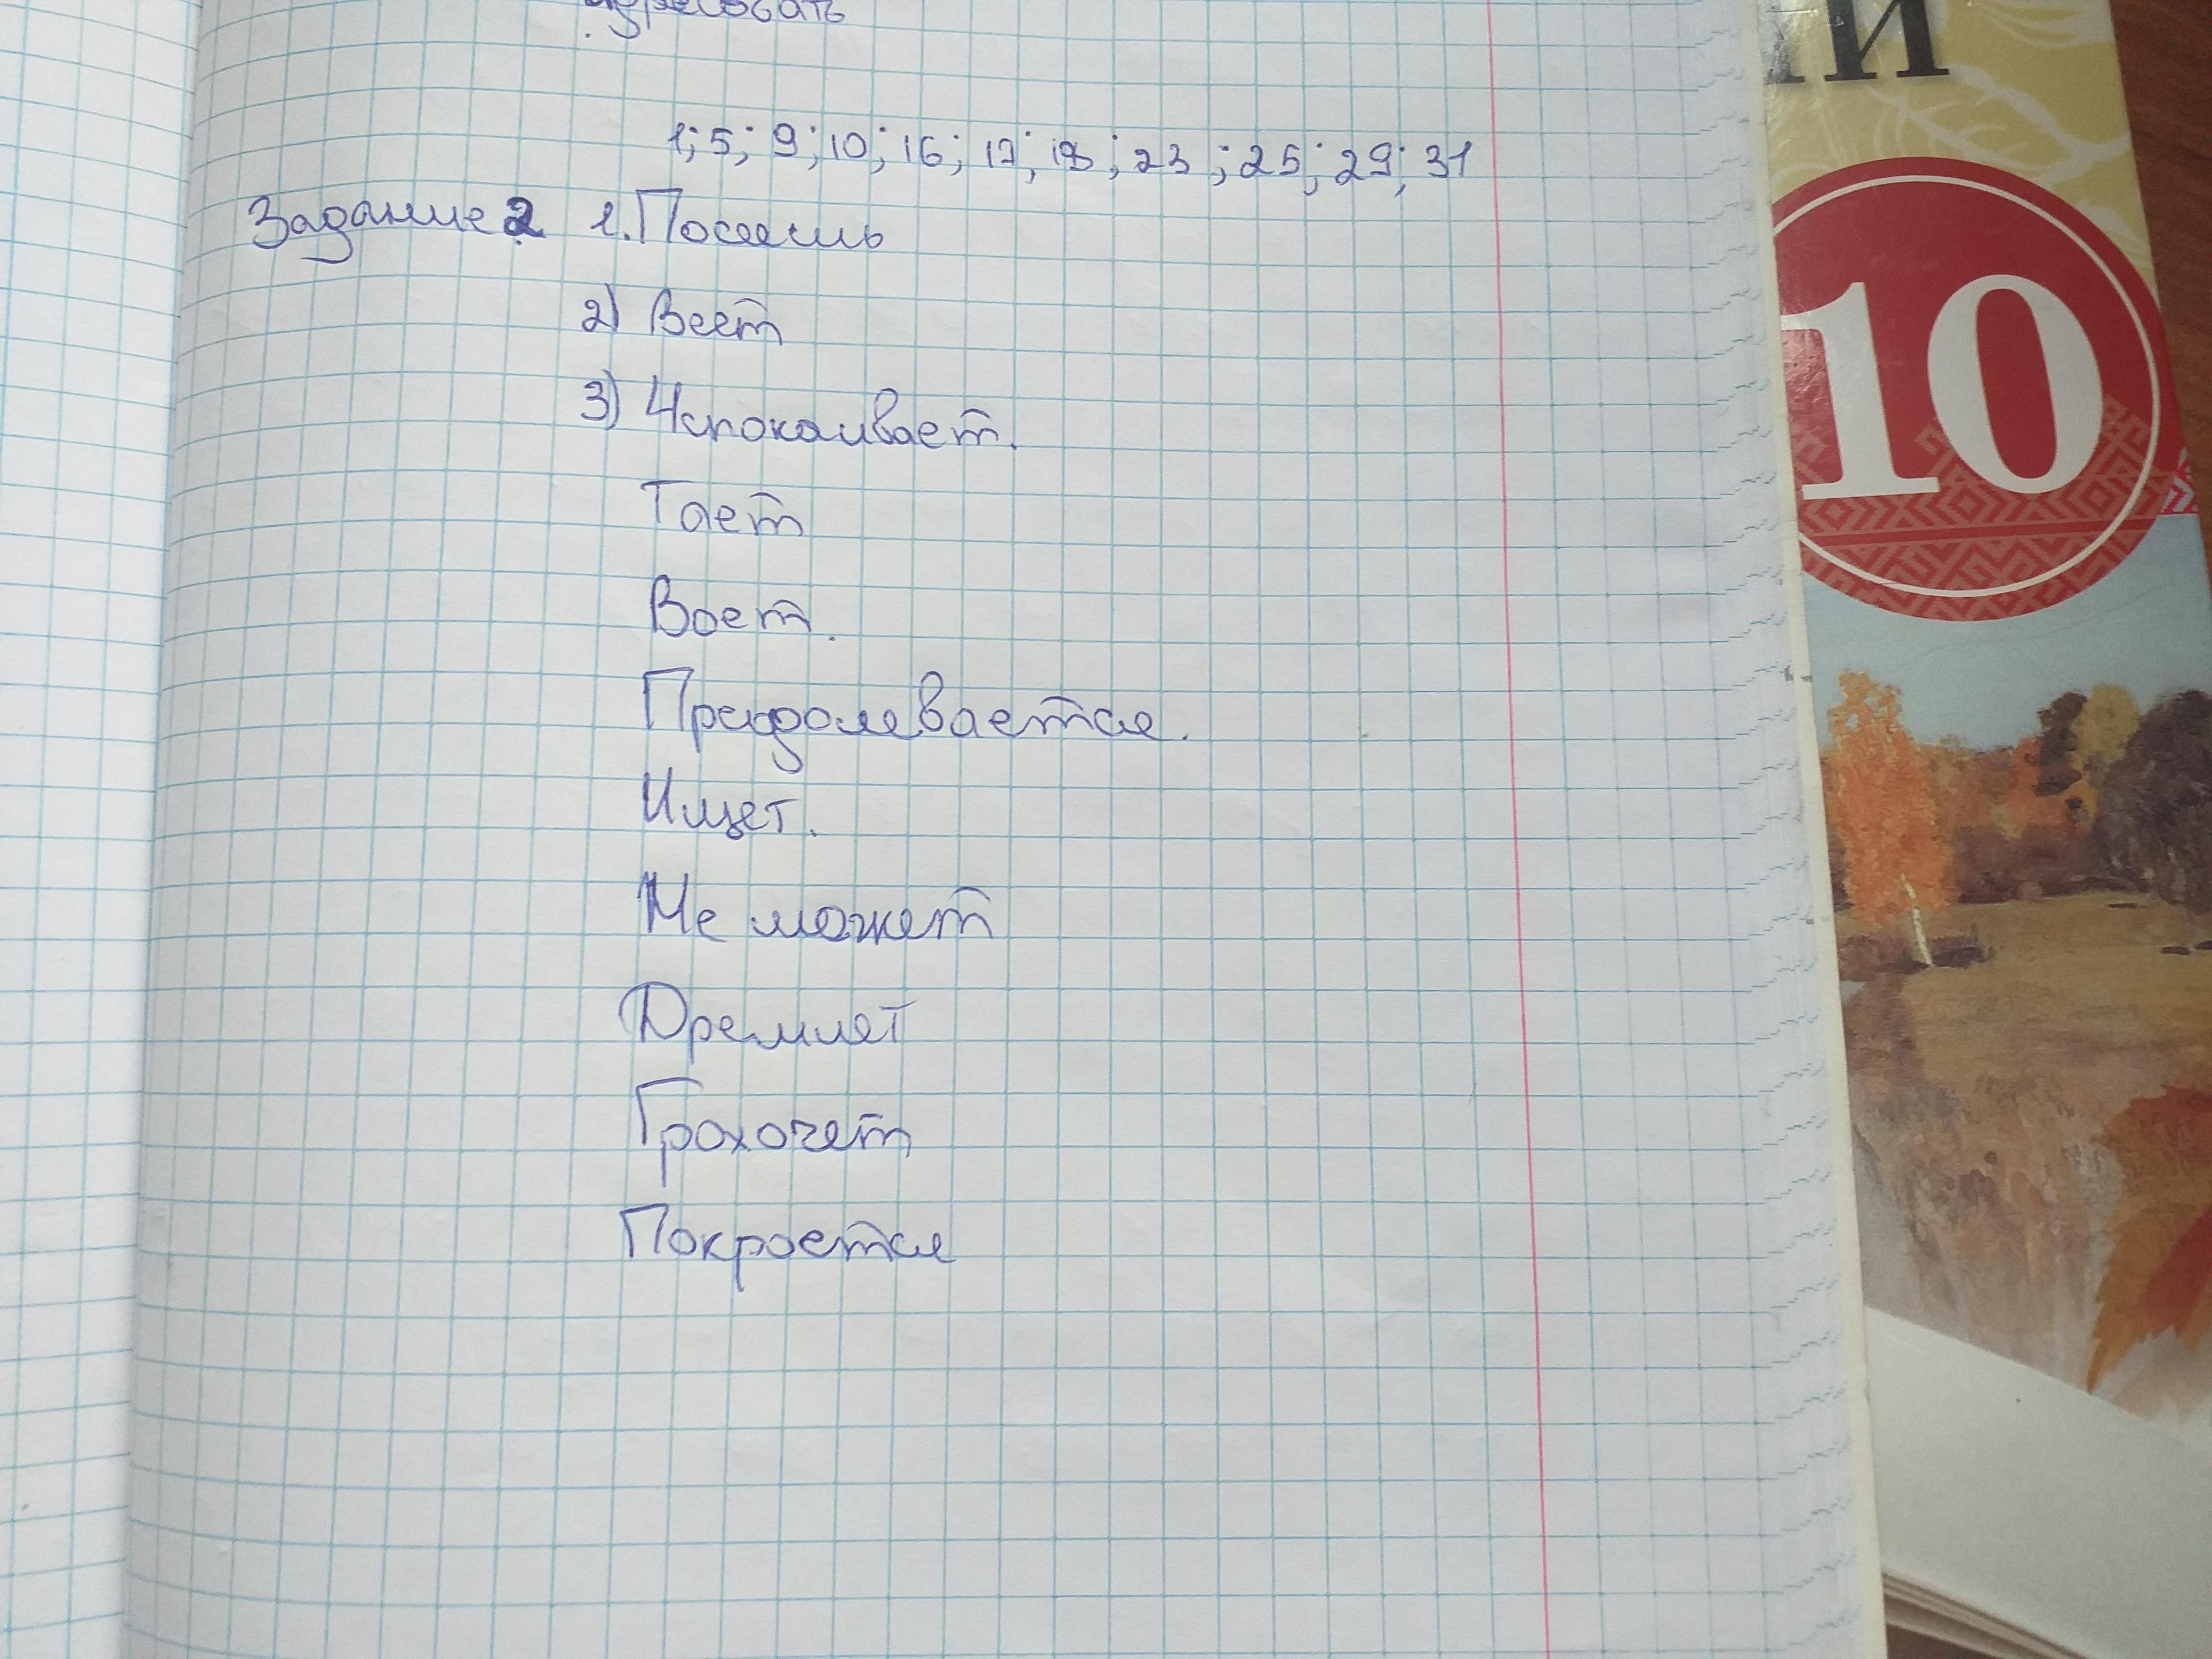 1; 5; 9; 10; 16; 17; 18; 23; 25; 29; 31
Задание 2 1. Посеешь
2) Веет
3) Успокаивает.
Тает
Воет.
Ищет.
Не может
Дремлет
Грохочет
Покроется
10